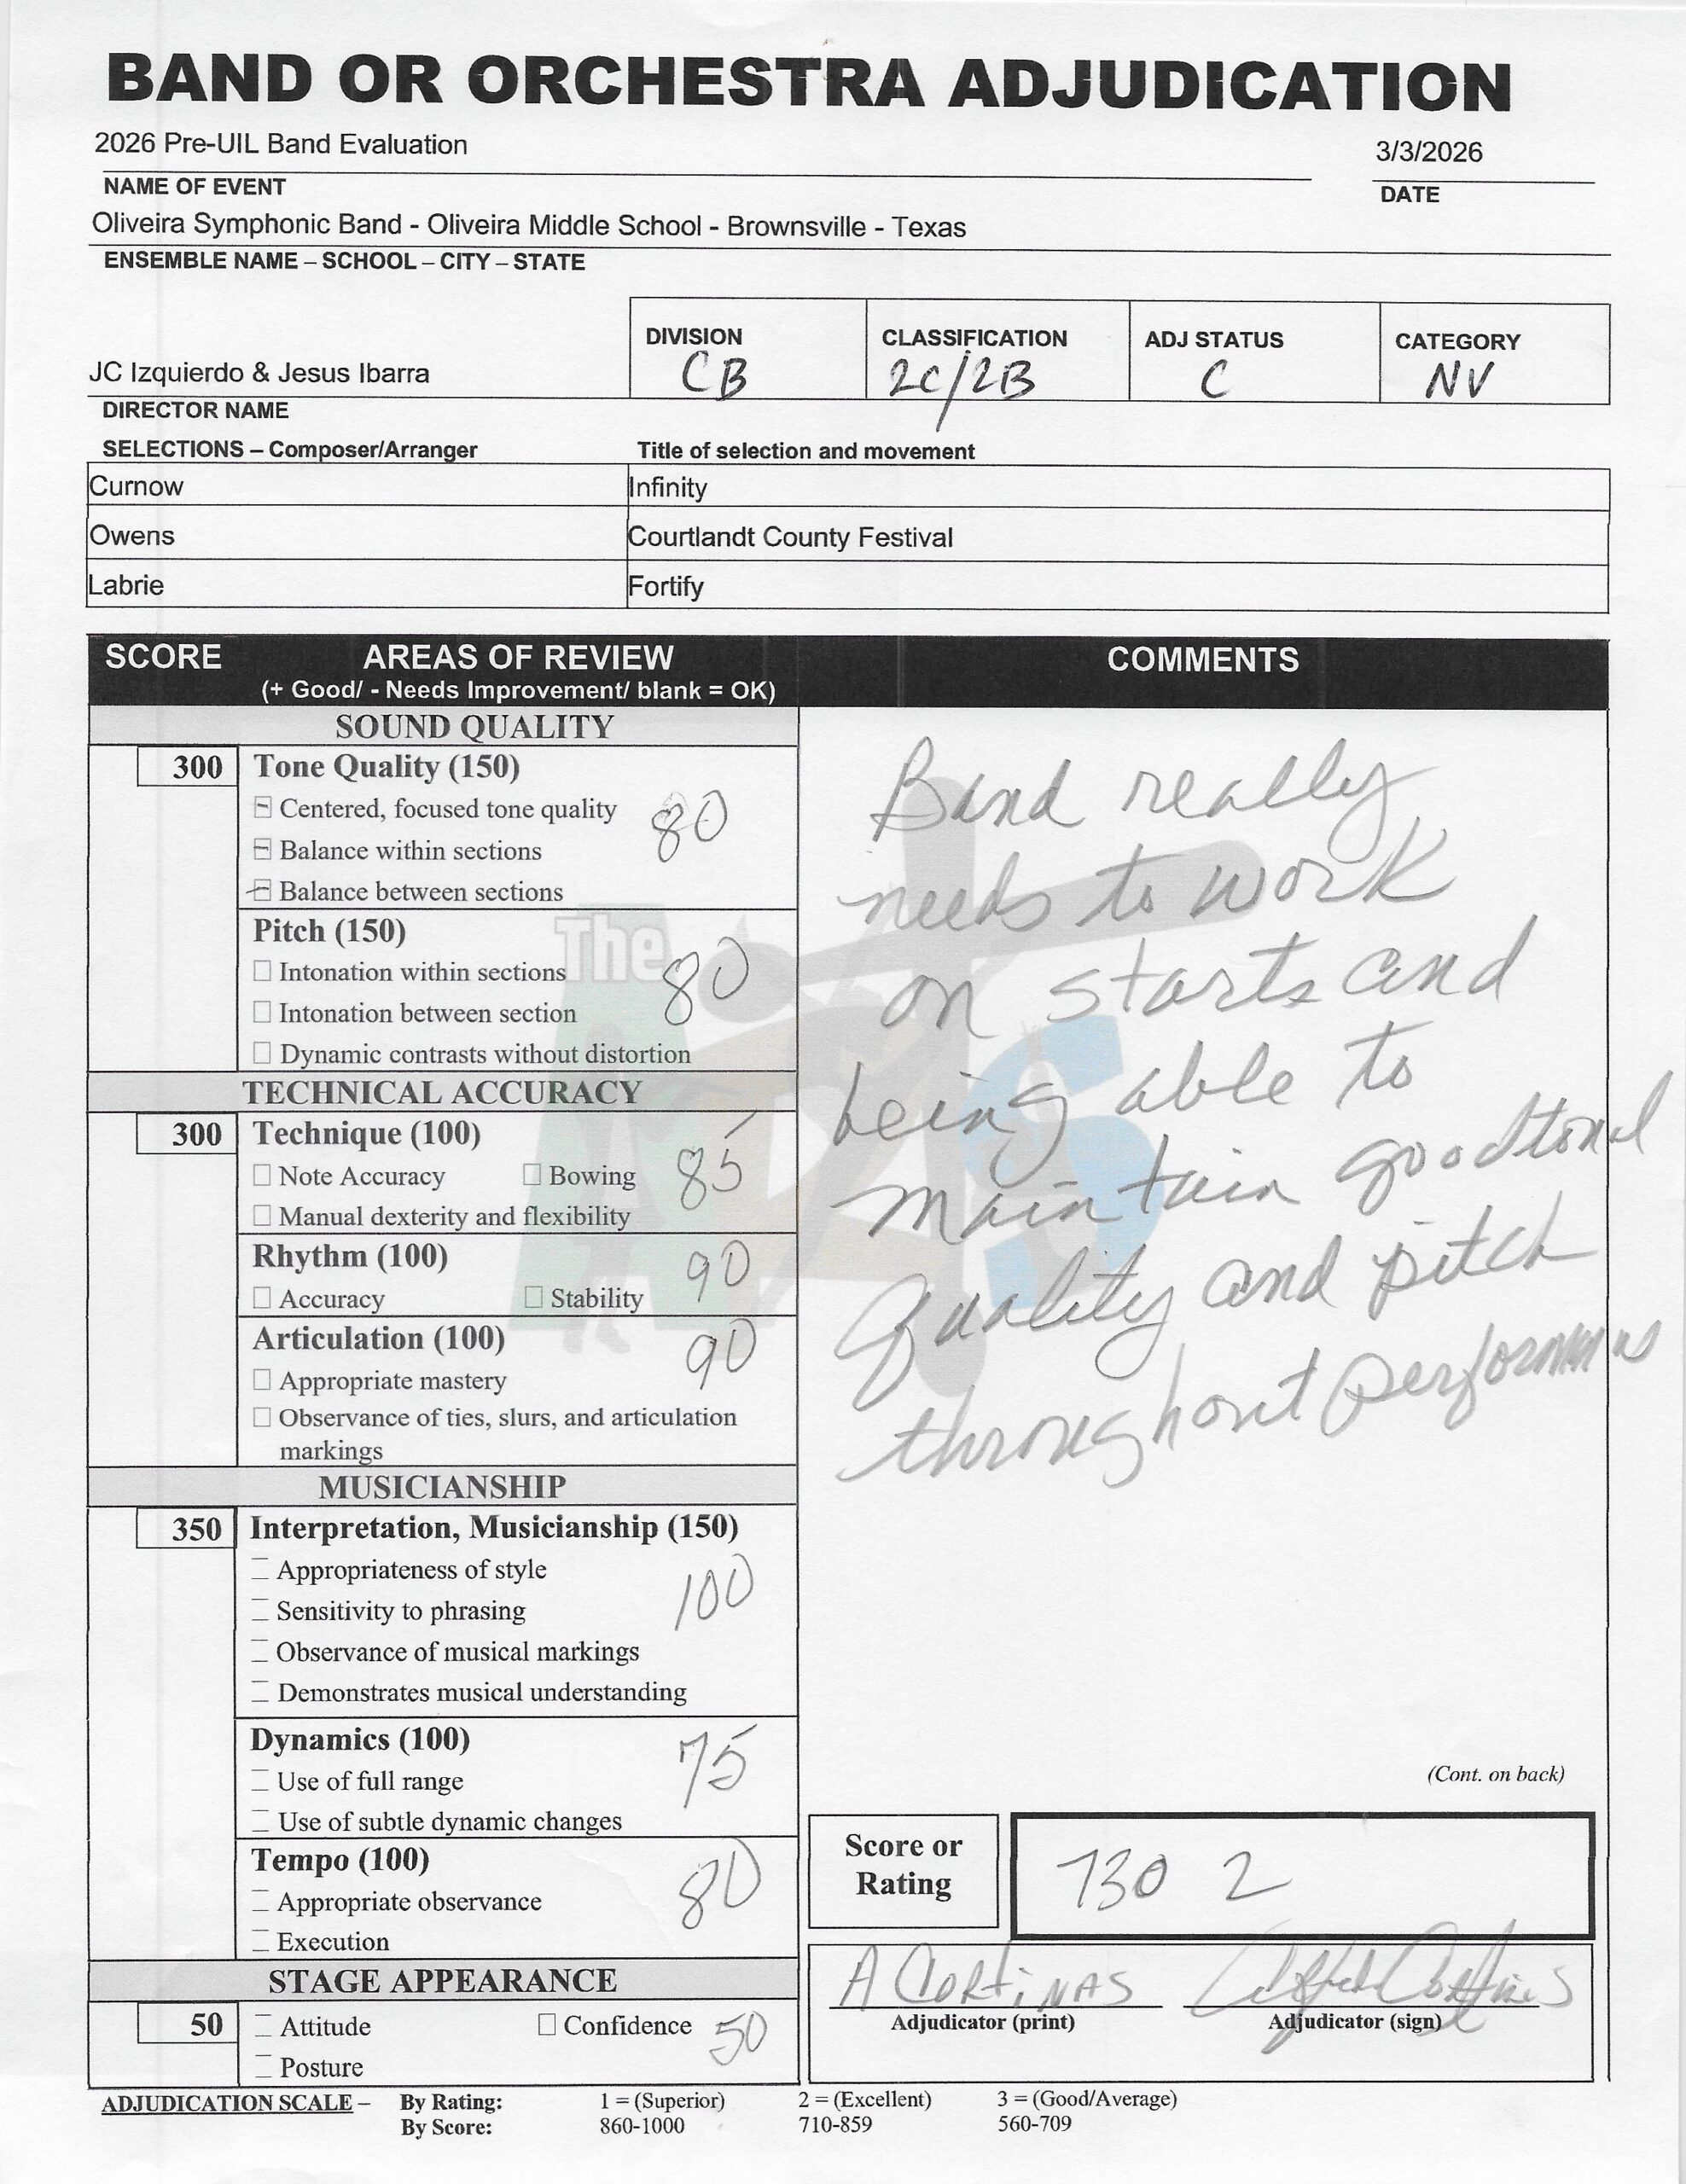 BAND OR ORCHESTRA ADJUDICATION
2026 Pre-UIL Band Evaluation
3/3/2026
NAME OF EVENT
DATE
Oliveira Symphonic Band - Oliveira Middle School - Brownsville - Texas
ENSEMBLE NAME – SCHOOL – CITY – STATE
DIVISION CLASSIFICATION ADJ STATUS CATEGORY
JC Izquierdo & Jesus Ibarra CB 2C/2B C NV
DIRECTOR NAME
SELECTIONS – Composer/Arranger Title of selection and movement
Curnow Infinity
Owens Courtlandt County Festival
Labrie Fortify
SCORE AREAS OF REVIEW COMMENTS
(+ Good/ - Needs Improvement/ blank = OK)
SOUND QUALITY
300 Tone Quality (150)
Centered, focused tone quality 80
Balance within sections
Balance between sections
Pitch (150)
Intonation within sections 80
Intonation between section
Dynamic contrasts without distortion
TECHNICAL ACCURACY
300 Technique (100)
Note Accuracy Bowing 85
Manual dexterity and flexibility
Rhythm (100) 90
Accuracy Stability
Articulation (100) 90
Appropriate mastery
Observance of ties, slurs, and articulation
markings
MUSICIANSHIP
350 Interpretation, Musicianship (150)
Appropriateness of style 100
Sensitivity to phrasing
Observance of musical markings
Demonstrates musical understanding
Dynamics (100) 75
Use of full range
Use of subtle dynamic changes
Tempo (100) 80
Appropriate observance
Execution
STAGE APPEARANCE
50 Attitude Confidence 50
Posture
Band really
needs to work
on starts and
being able to
maintain good tonal
quality and pitch
throughout
The
(Cont. on back)
Score or
Rating
730 2
A CORTINAS
Adjudicator (print) Adjudicator (sign)
ADJUDICATION SCALE – By Rating: 1 = (Superior) 2 = (Excellent) 3 = (Good/Average)
By Score: 860-1000 710-859 560-709